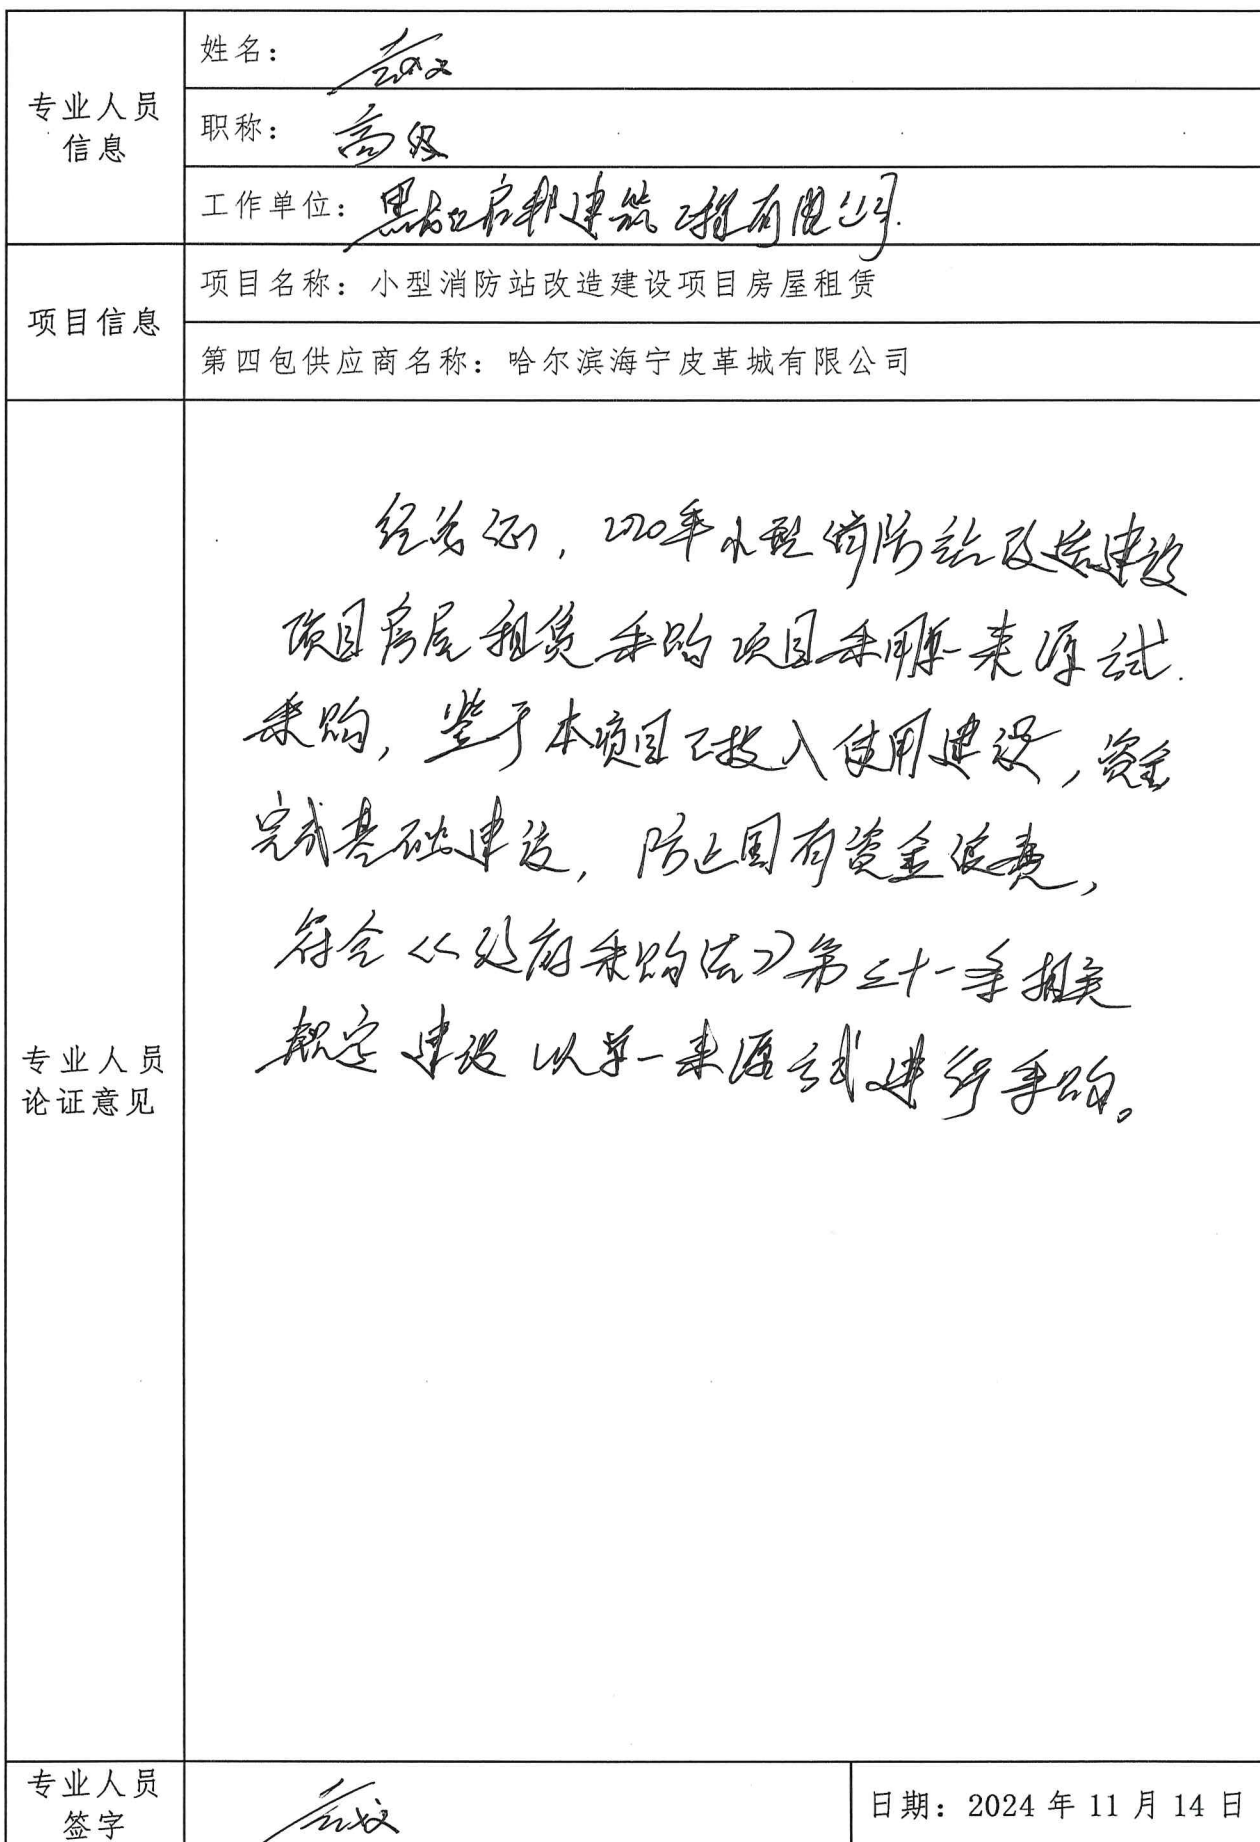 专业人员
信息
姓名：
职称： 高级
工作单位： 黑龙江启邦建筑工程有限公司.
项目信息
项目名称：小型消防站改造建设项目房屋租赁
第四包供应商名称：哈尔滨海宁皮革城有限公司
专业人员
论证意见
经论证，2020年小型消防站改造建设
项目房屋租赁采购项目采用单一来源方式.
采购，鉴于本项目已投入使用建设，资金
完成基础建设，防止国有资金浪费，
符合《政府采购法》第三十一条相关
规定 建议以单一来源方式进行采购。
专业人员
签字
日期：2024 年 11 月 14 日